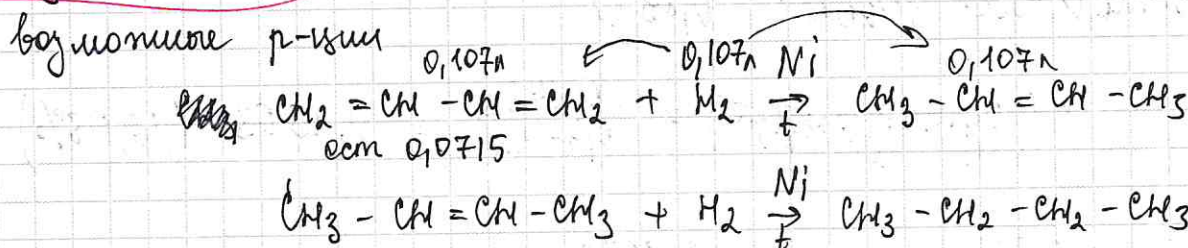 возможные р-ции
0,107л 0,107л Ni 0,107л
CH2 = CH - CH = CH2 + H2 → CH3 - CH = CH - CH3
t
ест 0,0715
Ni
CH3 - CH = CH - CH3 + H2 → CH3 - CH2 - CH2 - CH3
t